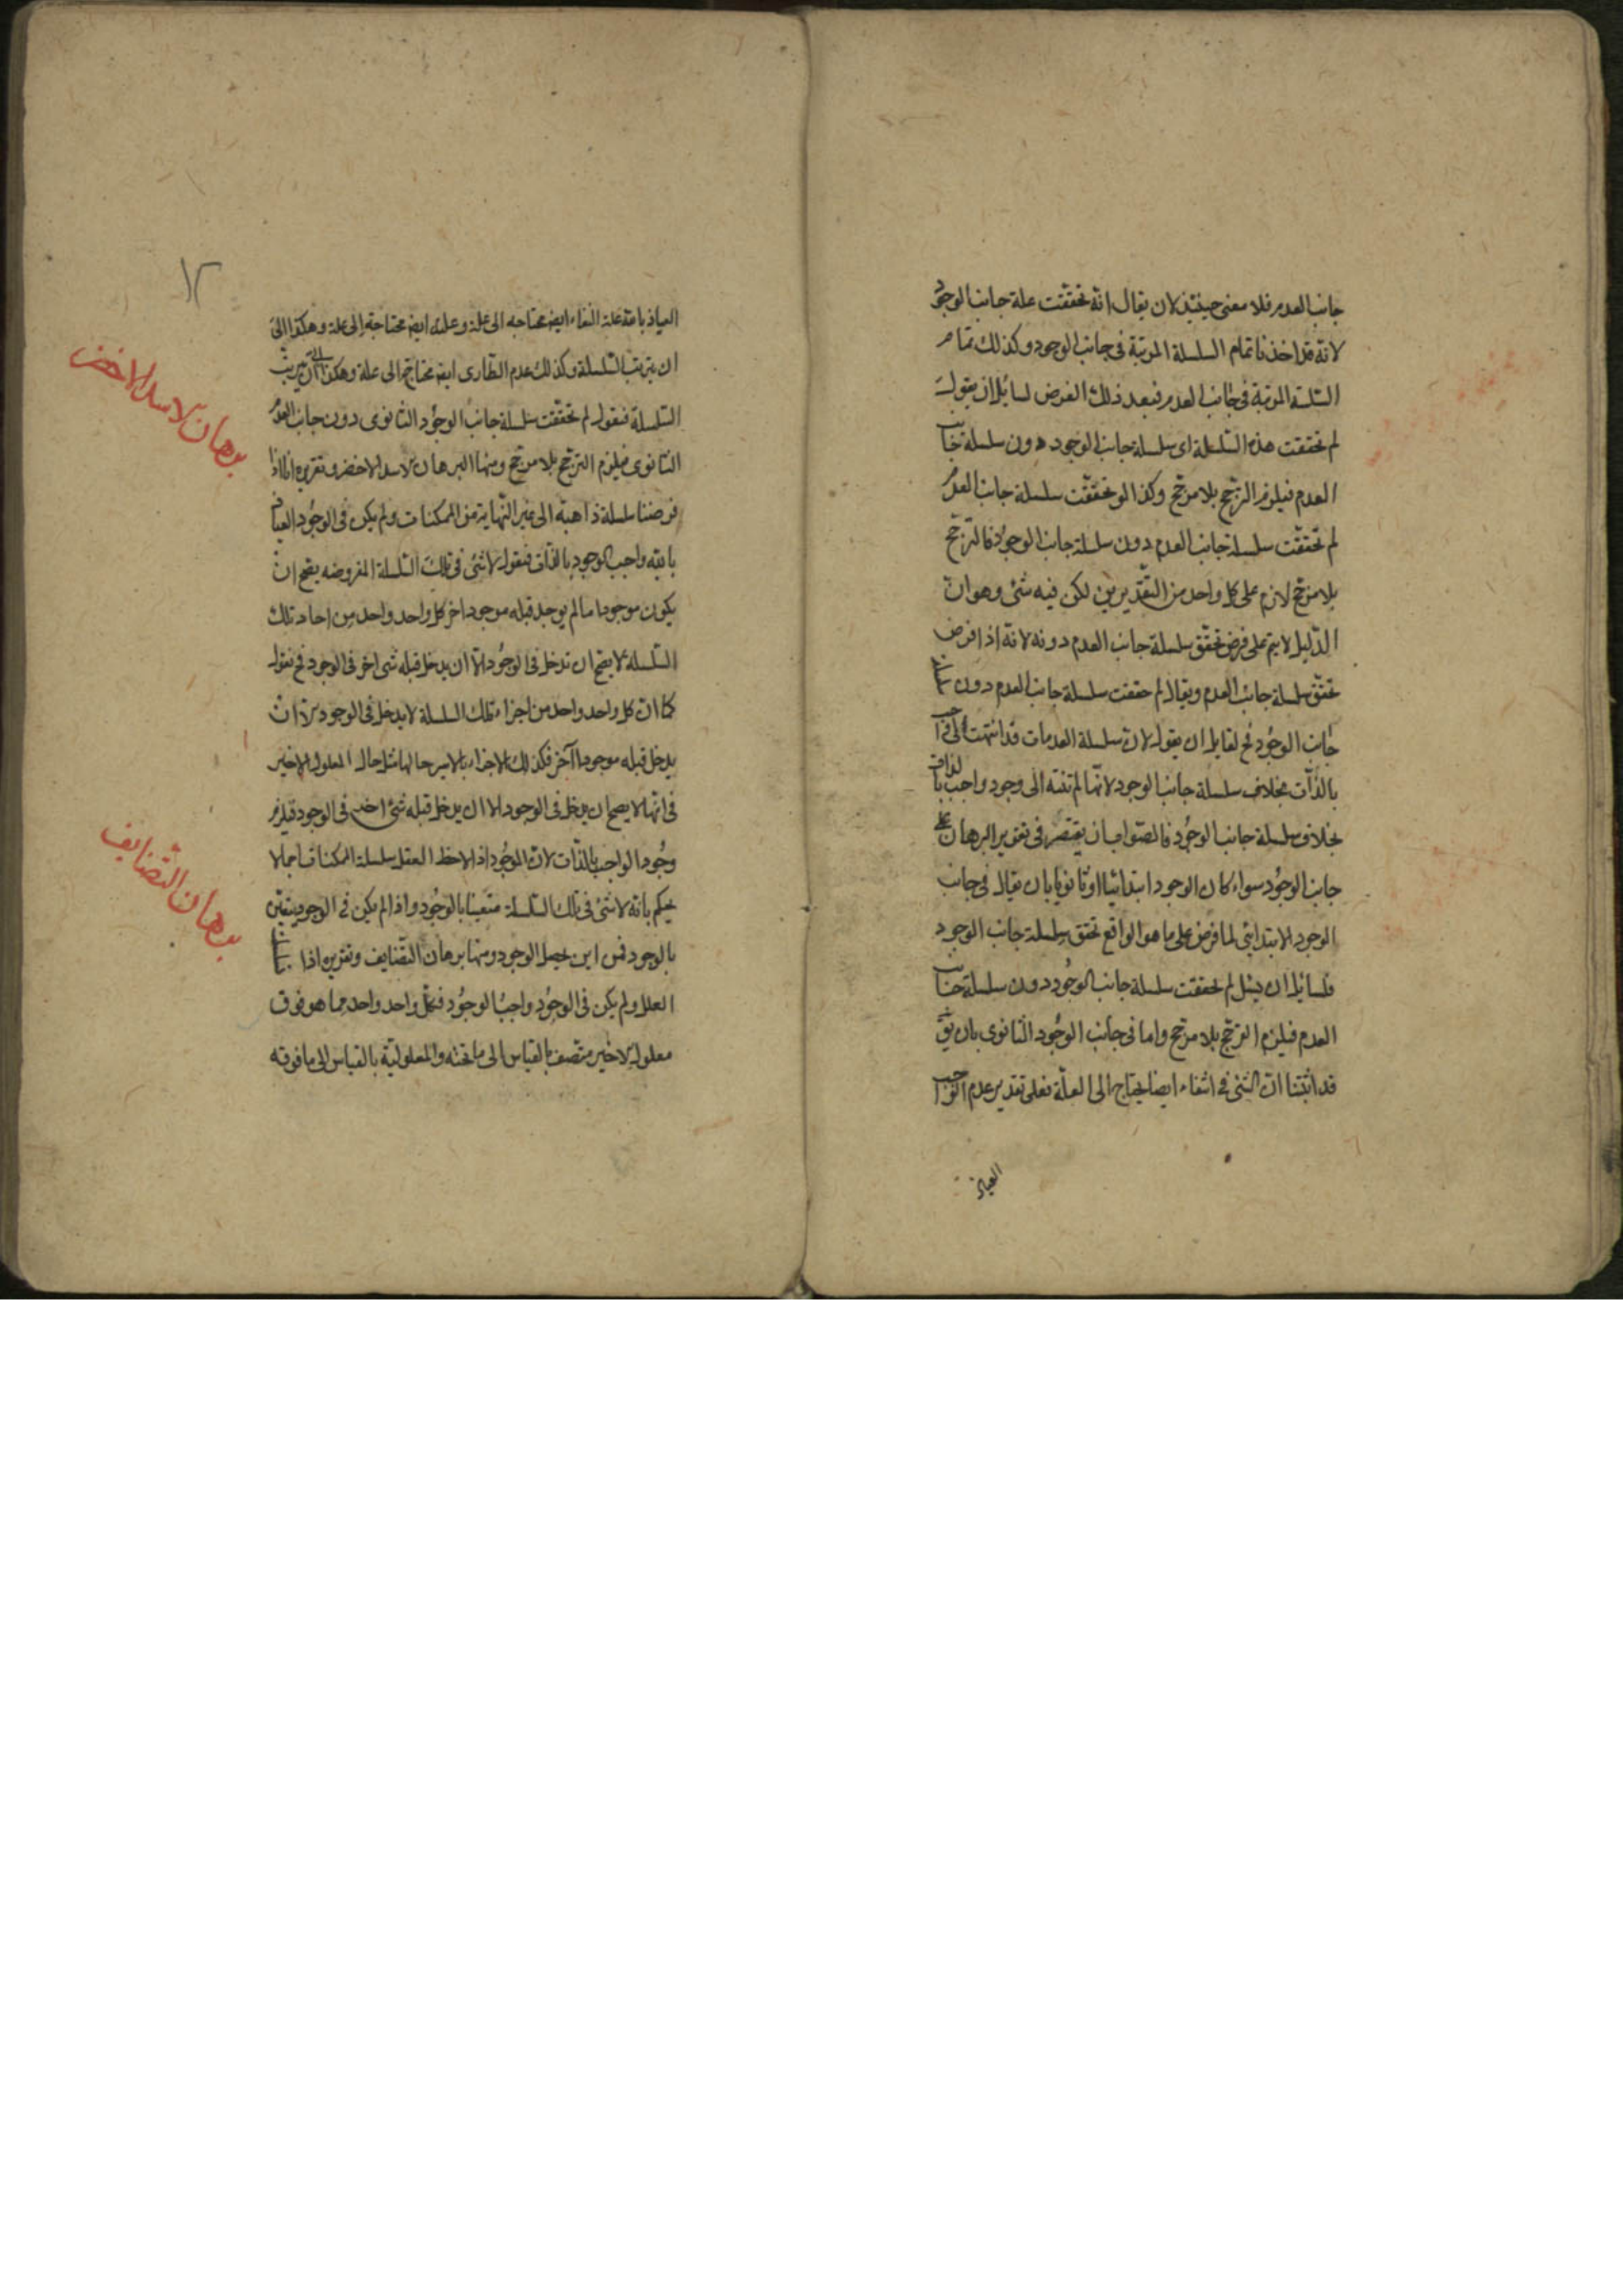 جانب العدم فلا معنى حينئذ لان يقال انه تحققت علة جانب الوجود
لانه قد اخذنا تمام السلسلة المرتبة فى جانب الوجود وكذلك تمام
السلسلة المرتبة فى جانب العدم فبعد ذلك الفرض لسائل ان يقول
لم تحققت هذه السلسلة اى سلسلة جانب الوجود دون سلسلة جانب
العدم فيلزم الترجيح بلا مرجح وكذا لو تحققت سلسلة جانب العدم
لم تحققت سلسلة جانب العدم دون سلسلة جانب الوجود فالترجيح
بلا مرجح لازم على كل واحد من التقديرين لكن فيه شئ وهو ان
الدليل لا يتم على فرض تحقق سلسلة جانب العدم دونه لانه اذا فرض
تحقق سلسلة جانب العدم ويقال لم حققت سلسلة جانب العدم دون
جانب الوجود فح لقايل ان يقول لان سلسلة العدمات قد انتهت الى
بالذات بخلاف سلسلة جانب الوجود لانها لم تنته الى وجود واجب بالذات
بخلاف سلسلة جانب الوجود فالصواب ان يقتصر فى تقرير البرهان على
جانب الوجود سواء كان الوجود ابتدائيا او ثانويا بان يقال فى جانب
الوجود الابتدائى لما فرض على ما هو الواقع تحقق سلسلة جانب الوجود
فلسايل ان يسئل لم تحققت سلسلة جانب الوجود دون سلسلة جانب
العدم فيلزم الترجيح بلا مرجح واما فى جانب الوجود الثانوى بان يق
قد اثبتنا ان الشئ فى انتفاء ايضا يحتاج الى العلة فعلى تقدير عدم الواجب
العياذ
١٢
العياذ بالله علة انتفاء ايض محتاجه الى علة وعلته ايض محتاجة الى علة وهكذا الى
ان يترتب السلسلة وكذلك عدم الطارى ايض محتاج الى علة وهكذا الى ان يترتب
السلسلة فنقول لم تحققت سلسلة جانب الوجود الثانوى دون جانب العدم
الثانوى فيلزم الترجيح بلا مرجح ومنها البرهان الاسد الاخضر وتقريره انا اذا
فرضنا سلسلة ذاهبة الى غير النهاية من الممكنات ولم يكن فى الوجود العياذ
بالله واجب الوجود بالذات فنقول لا شئ فى تلك السلسلة المفروضه يصح ان
يكون موجودا ما لم يوجد قبله موجود اخر كل واحد واحد من احاد تلك
السلسلة لا يصح ان تدخل فى الوجود الا ان يدخل قبله شى اخر فى الوجود فح نقول
كما ان كل واحد واحد من اجزاء تلك السلسلة لا يدخل فى الوجود الا ان
يدخل قبله موجودا آخر فكذلك الاجزاء بالاسر حالها مثل حال المعلول الاخير
فى انها لا يصح ان يدخل فى الوجود الا ان يدخل قبله شئ اخر فى الوجود فيلزم
وجود الواجب بالذات لان الموجود اذا لاحظ العقل سلسلة الممكنات اجمالا
يحكم بانه لا شئ فى تلك السلسلة متعينا بالوجود واذا لم يكن فى الوجود يتعين
بالوجود فمن اين يحصل الوجود ومنها برهان التضايف وتقريره اذا
العلل ولم يكن فى الوجود واجب الوجود فكل واحد واحد مما هو فوق
معلول الاخير متصف بالقياس الى ما تحته والمعلولية بالقياس الى ما فوقه
برهان الاسد الاخضر
برهان التضايف